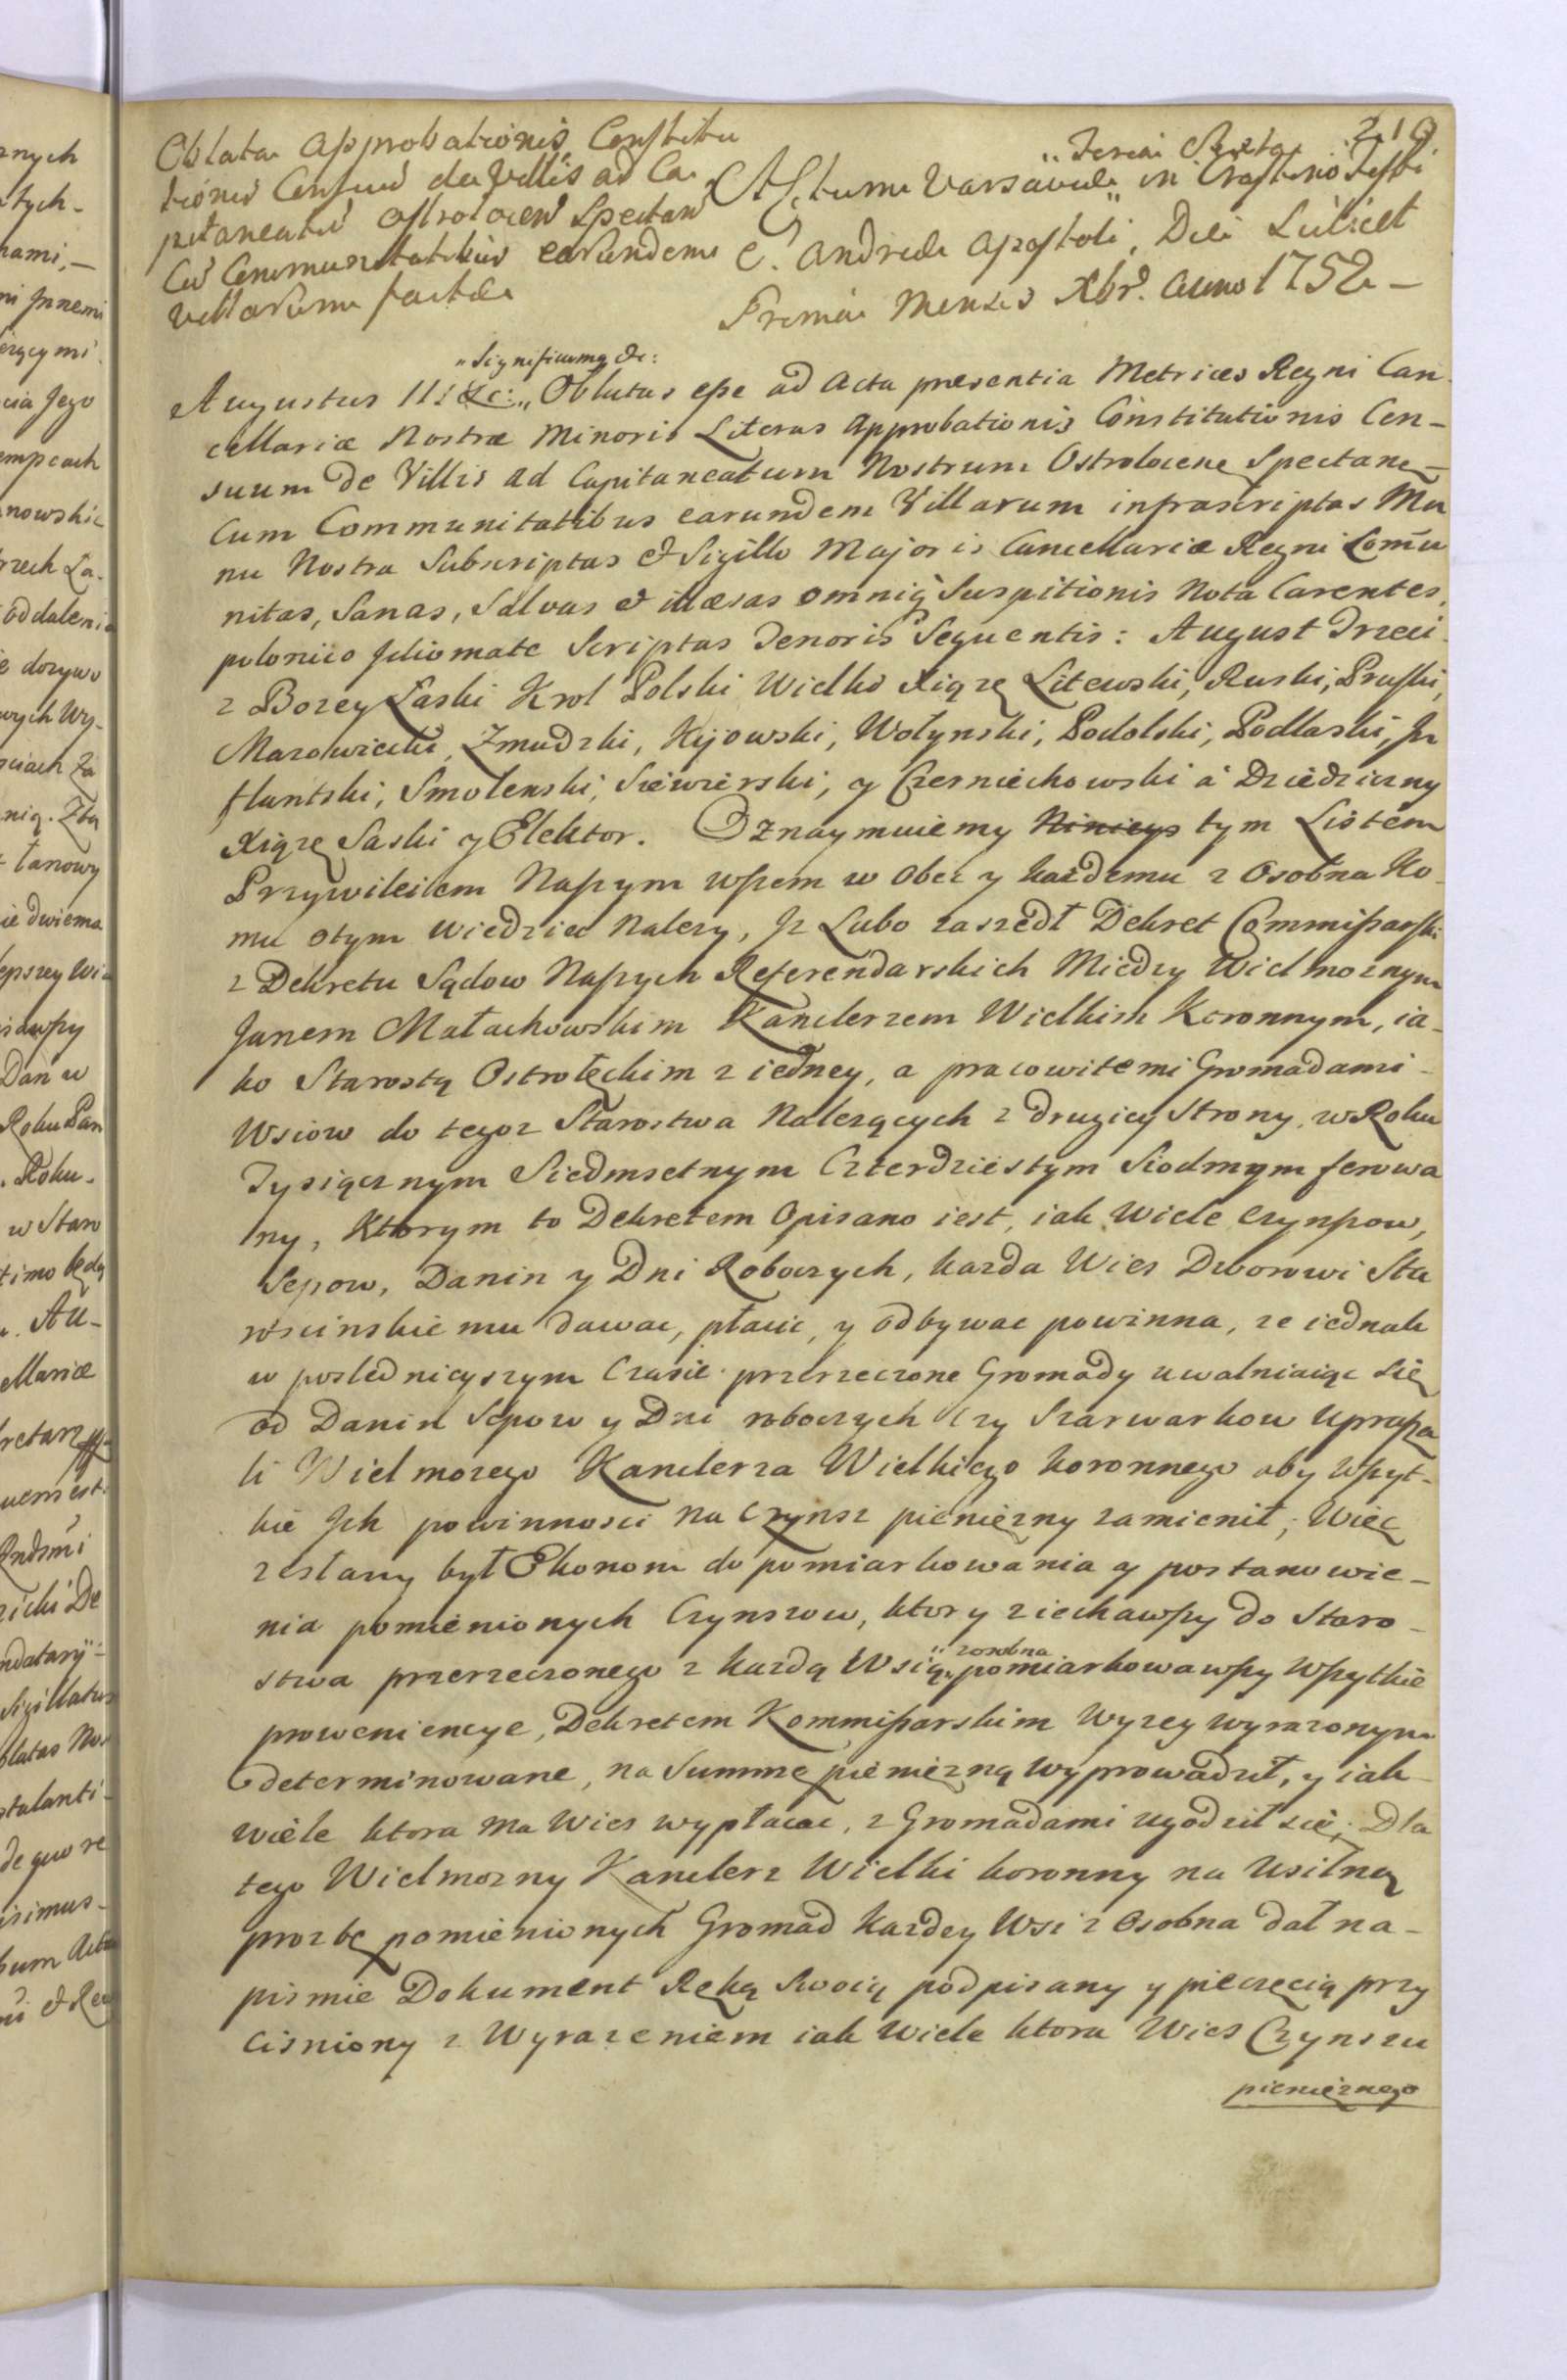 219
Oblata Approbationis Constitu
tionis Censuū de Villis ad Ca
pitaneatū Ostrolocen̄ Spectan̄
Cū Communitatibūs earundem
Villarum factæ
„Feria Sexta
Actum Varsaviæ „ in Crastino Festi
S. Andreæ Apostoli, Die Scilicet
Prima Mensis Xbr̄. Anno 1752 –
„Significamq &c:
Augustus III &c: „ Oblatas esse ad Acta presentia Metrices Regni Can
cellariæ Nostræ Minoris Literas Approbationis Constitutionis Cen-
suum de Villis ad Capitaneatum Nostrum Ostrolocen̄ Spectan̄ –
Cum Communitatibus earundem Villarum infrascriptas Ma
nu Nostra Subscriptas & Sigillo Majoris Cancellariæ Regni Com̄u
nitas, Sanas, Salvas & illæsas omniq̄ Suspitionis Nota Carentes,
polonico Idiomate Scriptas Tenoris Sequentis: August Trzeci
z Bozey Łaski Krol Polski Wielki Xiąze Litewski, Ruski, Pruski,
Mazowiecki, Zmudzki, Kijowski, Wołynski, Podolski, Podlaski, In
flantski, Smolenski, Siewierski, y Czerniechowski a Dziedziczny
Xiąze Saski y Elektor. Oznaymuiemy Ninieys tym Listem
Przywileiem Naszym wszem w obec y każdemu z osobna Ko-
mu otym wiedziec Nalezy, Jz Lubo zaszedł Dekret Commissarski
z Dekretu Sądow Naszych Referendarskich Miedzy Wielmoznym
Janem Małachowskim Kanclerzem Wielkim Koronnym, ia-
ko Starostą Ostrołęckim z iedney, a pracowitemi Gromadami –
Wsiow do tegoz Starostwa Nalezących z drugiey Strony, w Roku
Tysiącznym Siedmsetnym Czterdziestym Siodmym ferowa
ny, Ktorym to Dekretem Opisano iest, iak Wiele Czynszow,
Sepow, Danin y Dni Roboczych, kazda Wies Dworowi Sta
roscinskiemu dawac, płacic, y odbywac powinna, ze iednak
w poslednieyszym Czasie przerzeczone Gromady uwalniaiąc się
od Danin Sepow y Dni roboczych Czy Szarwarkow uprasza
li Wielmozego Kanclerza Wielkiego koronnego aby wszyt-
kie Jch powinnosci na Czynsz pieniezny zamienił; Więc
zesłany był Ekonom do pomiarkowania y postanowie-
nia pomienionych Czynszow, ktory ziechawszy do Staro-
„ zosobna
stwa przerzeczonego z kazdą Wsią „ pomiarkowawszy wszytkie
proweniencye, Dekretem Kommissarskim wyzey wyrazonym
determinowane, na Summę pienieżną wyprowadził, y iak –
wiele ktora ma Wies wypłacac, z Gromadami ugodził się; Dla
tego Wielmozny Kanclerz Wielki koronny na Usilną
prozbę pomienionych Gromad kazdey Wsi z Osobna dał na-
pismie Dokument Ręką Swoią podpisany y pieczęcią przy
cisniony z Wyrazeniem iak wiele ktora Wies Czynszu
pienięznego